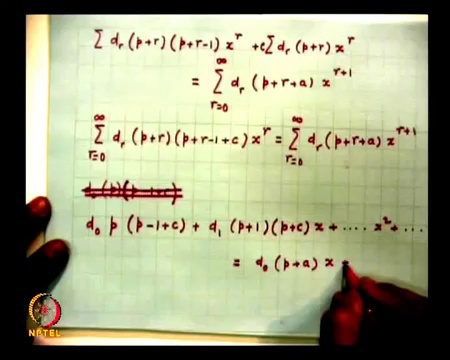 Σ d_r (p+r)(p+r-1) x^r + c Σ d_r (p+r) x^r
= Σ_{r=0}^{∞} d_r (p+r+a) x^{r+1}
Σ_{r=0}^{∞} d_r (p+r)(p+r-1+c) x^r = Σ_{r=0}^{∞} d_r (p+r+a) x^{r+1}
d_0 p (p-1+c) + d_1 (p+1)(p+c) x + .... x^2 + ...
= d_0 (p+a) x
NPTEL